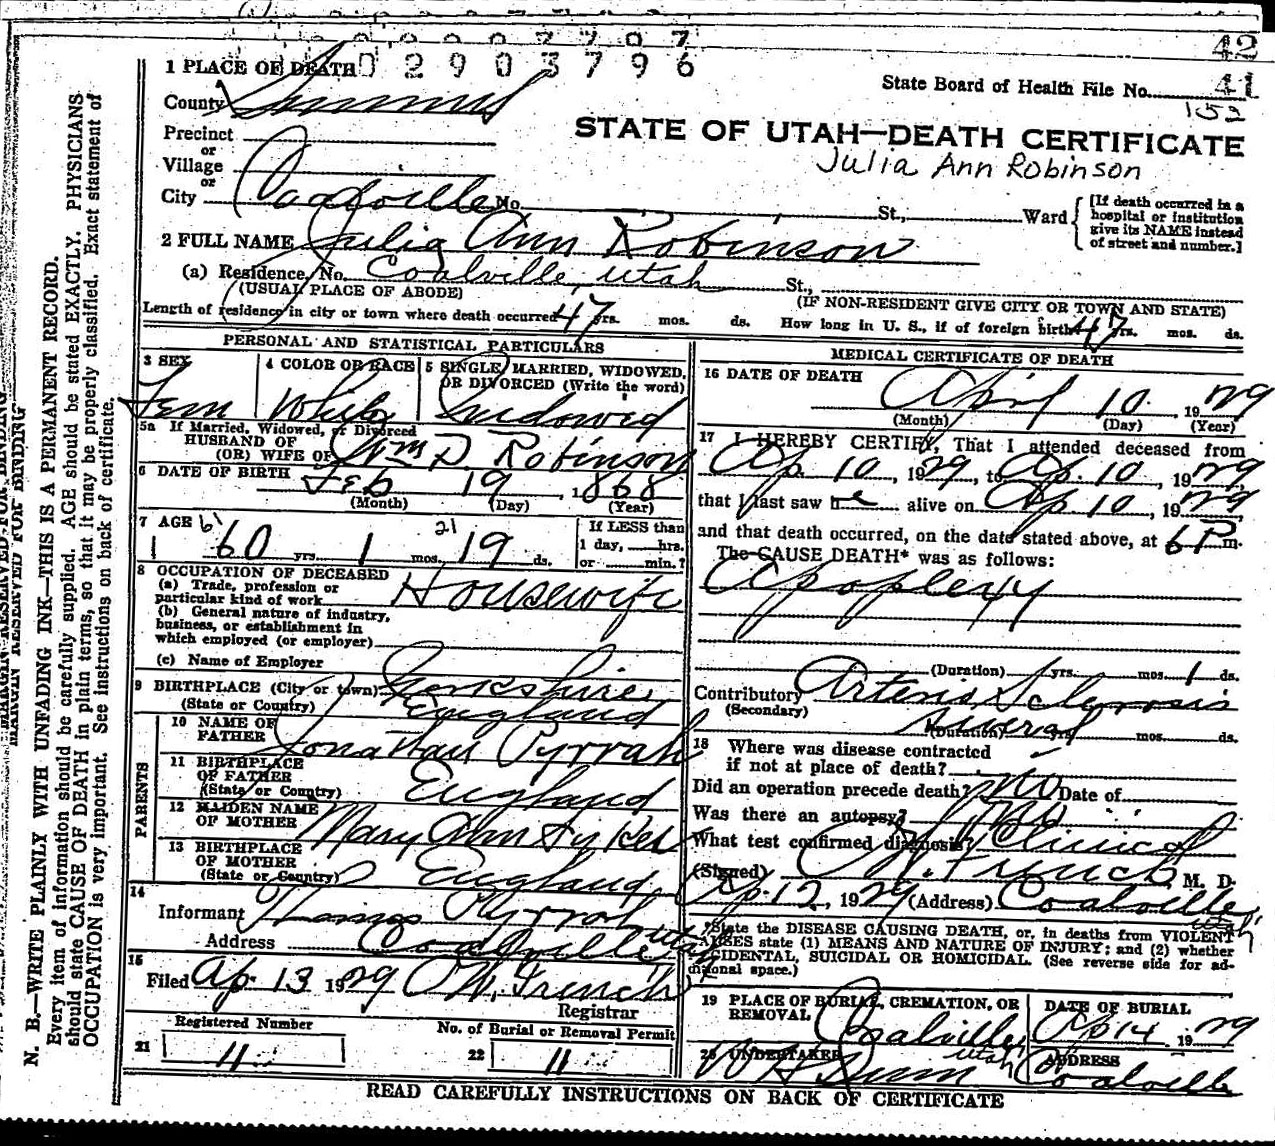 42
0 2 9 0 3 7 9 6
1 PLACE OF DEATH
State Board of Health File No. 41
County Summit
152
STATE OF UTAH—DEATH CERTIFICATE
Precinct
or
Village
Julia Ann Robinson
or
City Coalville No. St., Ward
[If death occurred in a hospital or institution give its NAME instead of street and number.]
2 FULL NAME Julia Ann Robinson
(a) Residence, No. Coalville, Utah St.,
(USUAL PLACE OF ABODE) (IF NON-RESIDENT GIVE CITY OR TOWN AND STATE)
Length of residence in city or town where death occurred 47 yrs. mos. ds. How long in U. S., if of foreign birth 47 yrs. mos. ds.
PERSONAL AND STATISTICAL PARTICULARS
3 SEX Fem
4 COLOR OR RACE White
5 SINGLE, MARRIED, WIDOWED, OR DIVORCED (Write the word) Widowed
5a If Married, Widowed, or Divorced
HUSBAND OF
(OR) WIFE OF Wm D Robinson
6 DATE OF BIRTH Feb 19, 1868
(Month) (Day) (Year)
7 AGE 61 60 yrs. 1 mos. 21 19 ds.
If LESS than
1 day, hrs.
or min.?
8 OCCUPATION OF DECEASED
(a) Trade, profession or
particular kind of work Housewife
(b) General nature of industry,
business, or establishment in
which employed (or employer)
(c) Name of Employer
9 BIRTHPLACE (City or town) Yorkshire
(State or Country) England
PARENTS
10 NAME OF
FATHER Jonathan Pyrrah
11 BIRTHPLACE
OF FATHER
(State or Country) England
12 MAIDEN NAME
OF MOTHER Mary Ann Sykes
13 BIRTHPLACE
OF MOTHER
(State or Country) England
14
Informant Thomas Pyrrah
Address Coalville Utah
15
Filed Ap. 13 1929 O W. French
Registrar
Registered Number
21 11
No. of Burial or Removal Permit
22 11
MEDICAL CERTIFICATE OF DEATH
16 DATE OF DEATH April 10 1929
(Month) (Day) (Year)
17 I HEREBY CERTIFY, That I attended deceased from
Ap. 10, 1929, to Ap. 10, 1929
that I last saw her alive on Ap 10, 1929
and that death occurred, on the date stated above, at 6 P m.
The CAUSE DEATH* was as follows:
Apoplexy
(Duration) yrs. mos. 1 ds.
Contributory Arterio Sclerosis
(Secondary)
(Duration) Several mos. ds.
18 Where was disease contracted
if not at place of death?
Did an operation precede death? No Date of
Was there an autopsy? No
What test confirmed diagnosis? Clinical
(Signed) O W. French, M. D.
Ap. 12, 1929 (Address) Coalville Utah
*State the DISEASE CAUSING DEATH, or, in deaths from VIOLENT
CAUSES state (1) MEANS AND NATURE OF INJURY; and (2) whether
ACCIDENTAL, SUICIDAL OR HOMICIDAL. (See reverse side for ad-
ditional space.)
19 PLACE OF BURIAL, CREMATION, OR
REMOVAL Coalville Utah
DATE OF BURIAL
Ap 14 1929
20 UNDERTAKER
W H Dunn
ADDRESS
Coalville
READ CAREFULLY INSTRUCTIONS ON BACK OF CERTIFICATE
MARGIN RESERVED FOR BINDING
N. B.—WRITE PLAINLY WITH UNFADING INK—THIS IS A PERMANENT RECORD.
Every item of information should be carefully supplied. AGE should be stated EXACTLY. PHYSICIANS
should state CAUSE OF DEATH in plain terms, so that it may be properly classified. Exact statement of
OCCUPATION is very important. See instructions on back of certificate.